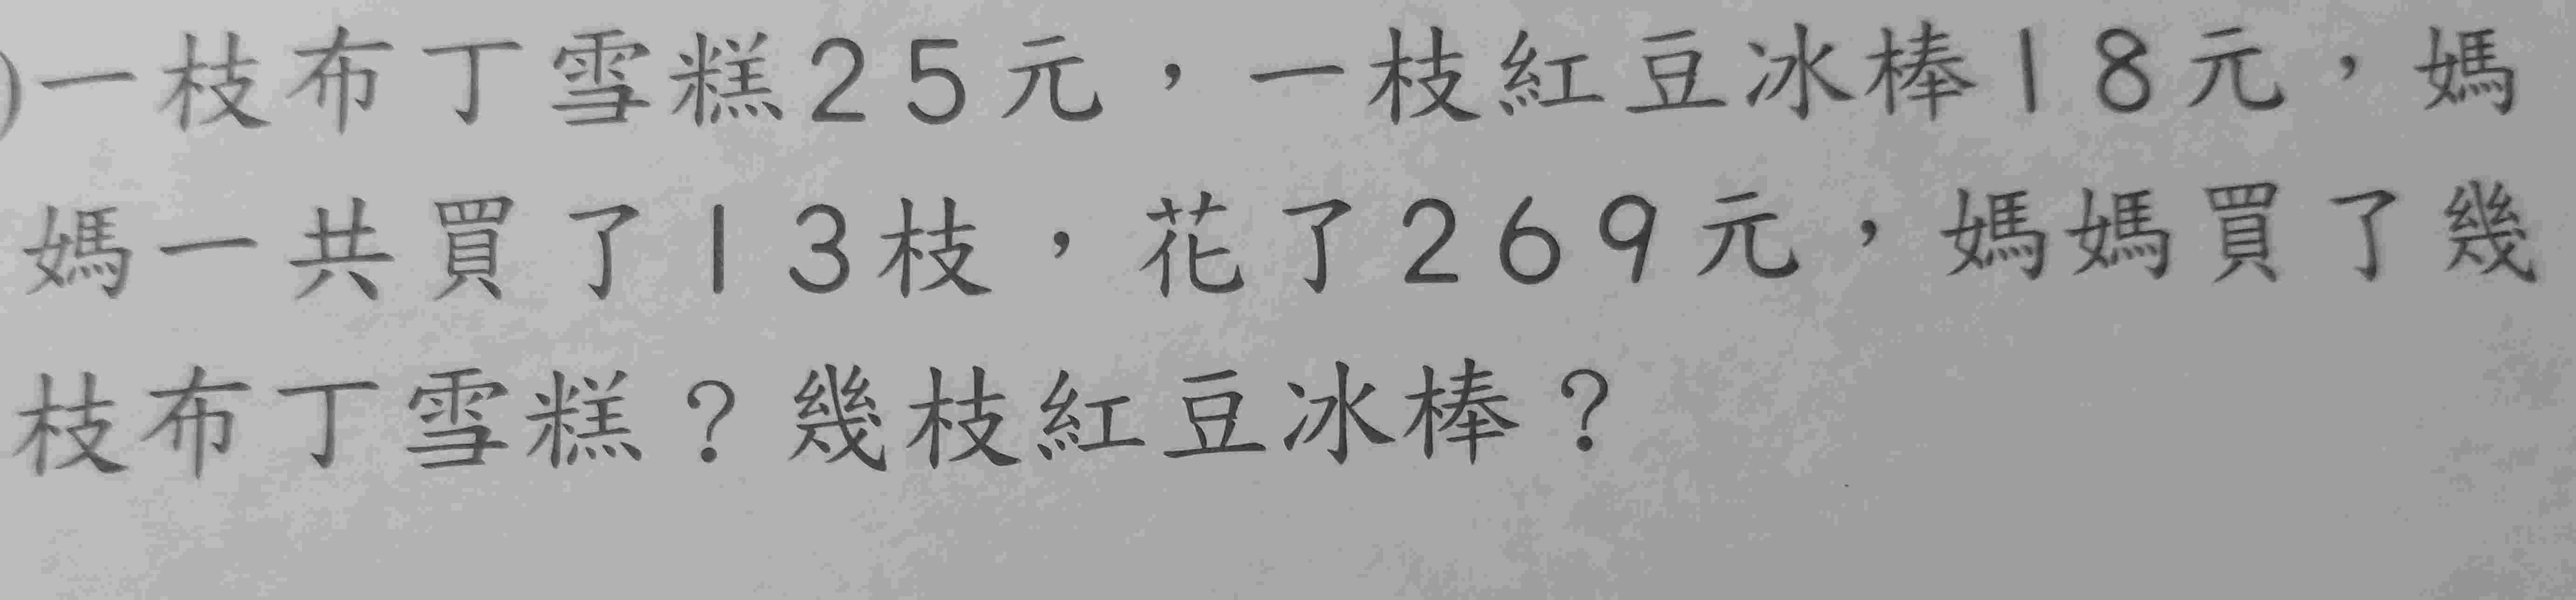 )一枝布丁雪糕25元，一枝紅豆冰棒18元，媽
媽一共買了13枝，花了269元，媽媽買了幾
枝布丁雪糕？幾枝紅豆冰棒？